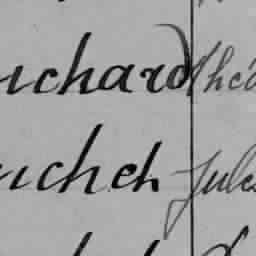 uchard Théo
uchet Jules